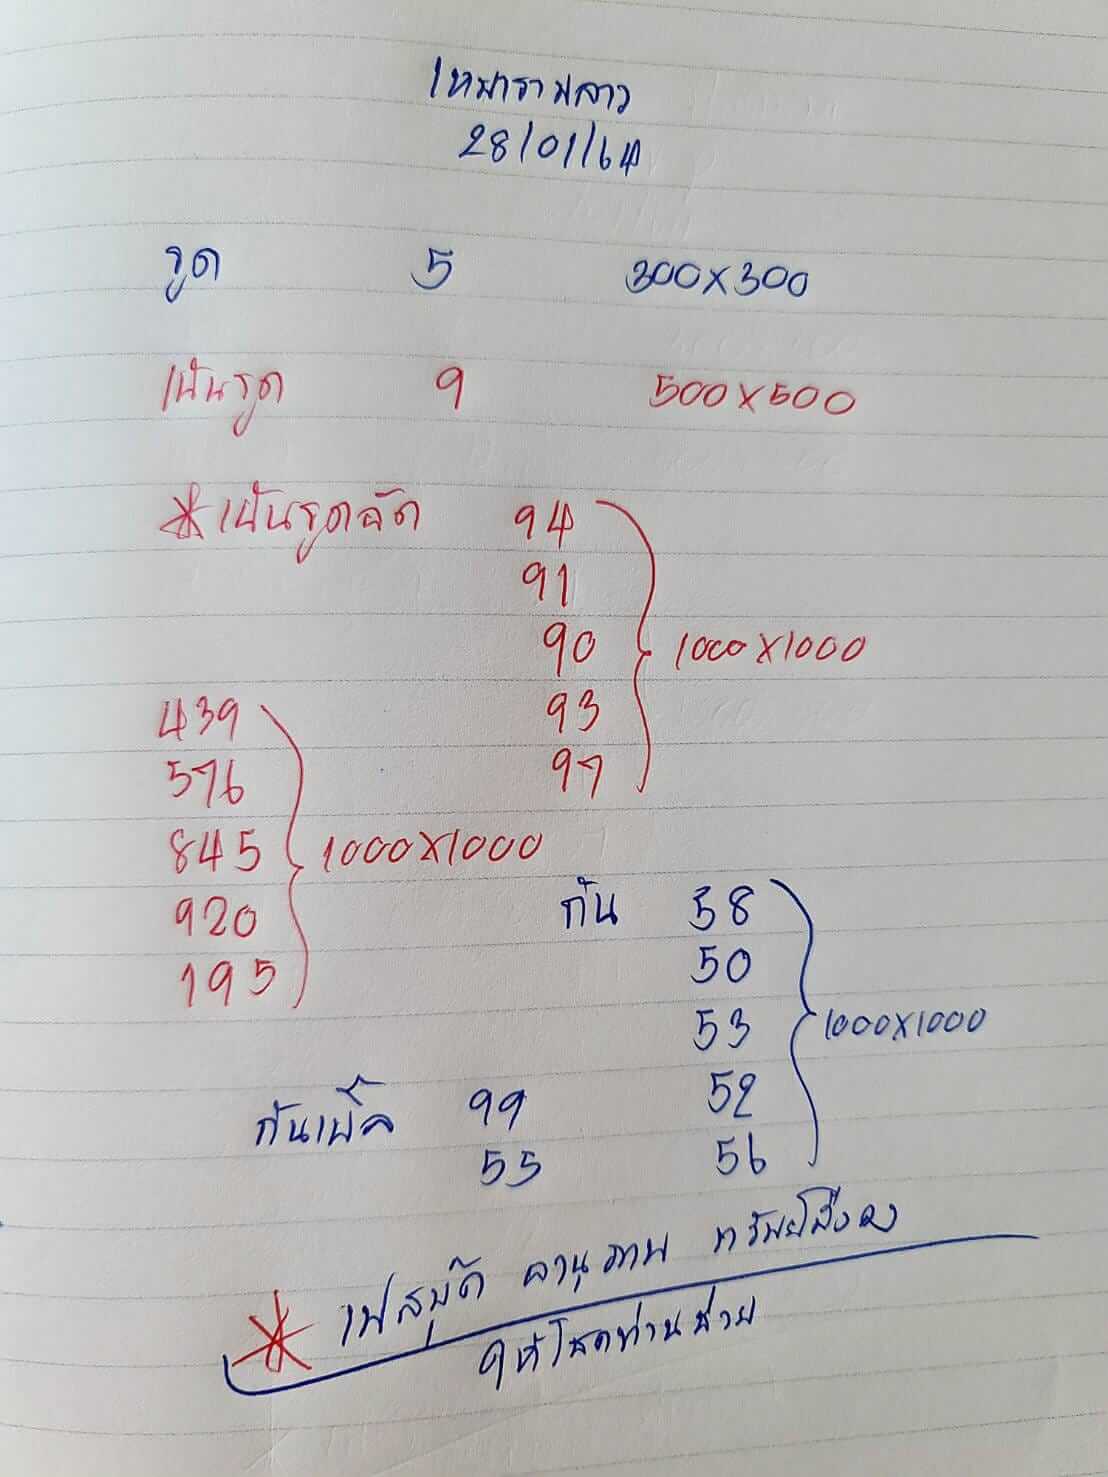 เหมารามลาว
28/01/64
รูด 5 300x300
เน้นรูด 9 500x500
*เน้นรูดจัด 94
91
90 1000x1000
93
97
439
576
845 1000x1000
920
195
กัน 58
50
53 1000x1000
52
56
กันเบิ้ล 99
55
* เฟสบุ๊ค อานุภาพ ทรัพย์
ให้โชคท่านชาย